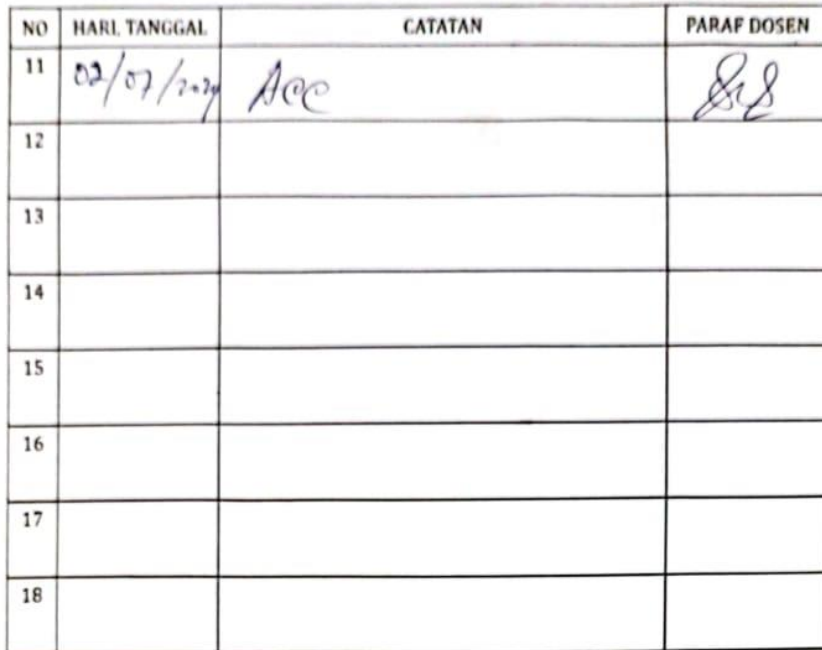 NO HARI, TANGGAL CATATAN PARAF DOSEN
11 02/07/2024 Acc
12
13
14
15
16
17
18